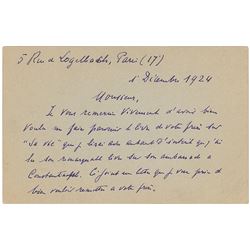 5 Rue de Logelbach, Paris (17)
1er Décembre 1924
Monsieur,
Je vous remercie vivement d'avoir bien
voulu me faire parvenir le livre de votre frère sur
"Sa vie" que je lirai avec autant d'intérêt que j'ai
lu son remarquable livre sur son ambassade à
Constantinople. Ci-joint un lettre que je vous prie de
bien vouloir remettre à votre frère.